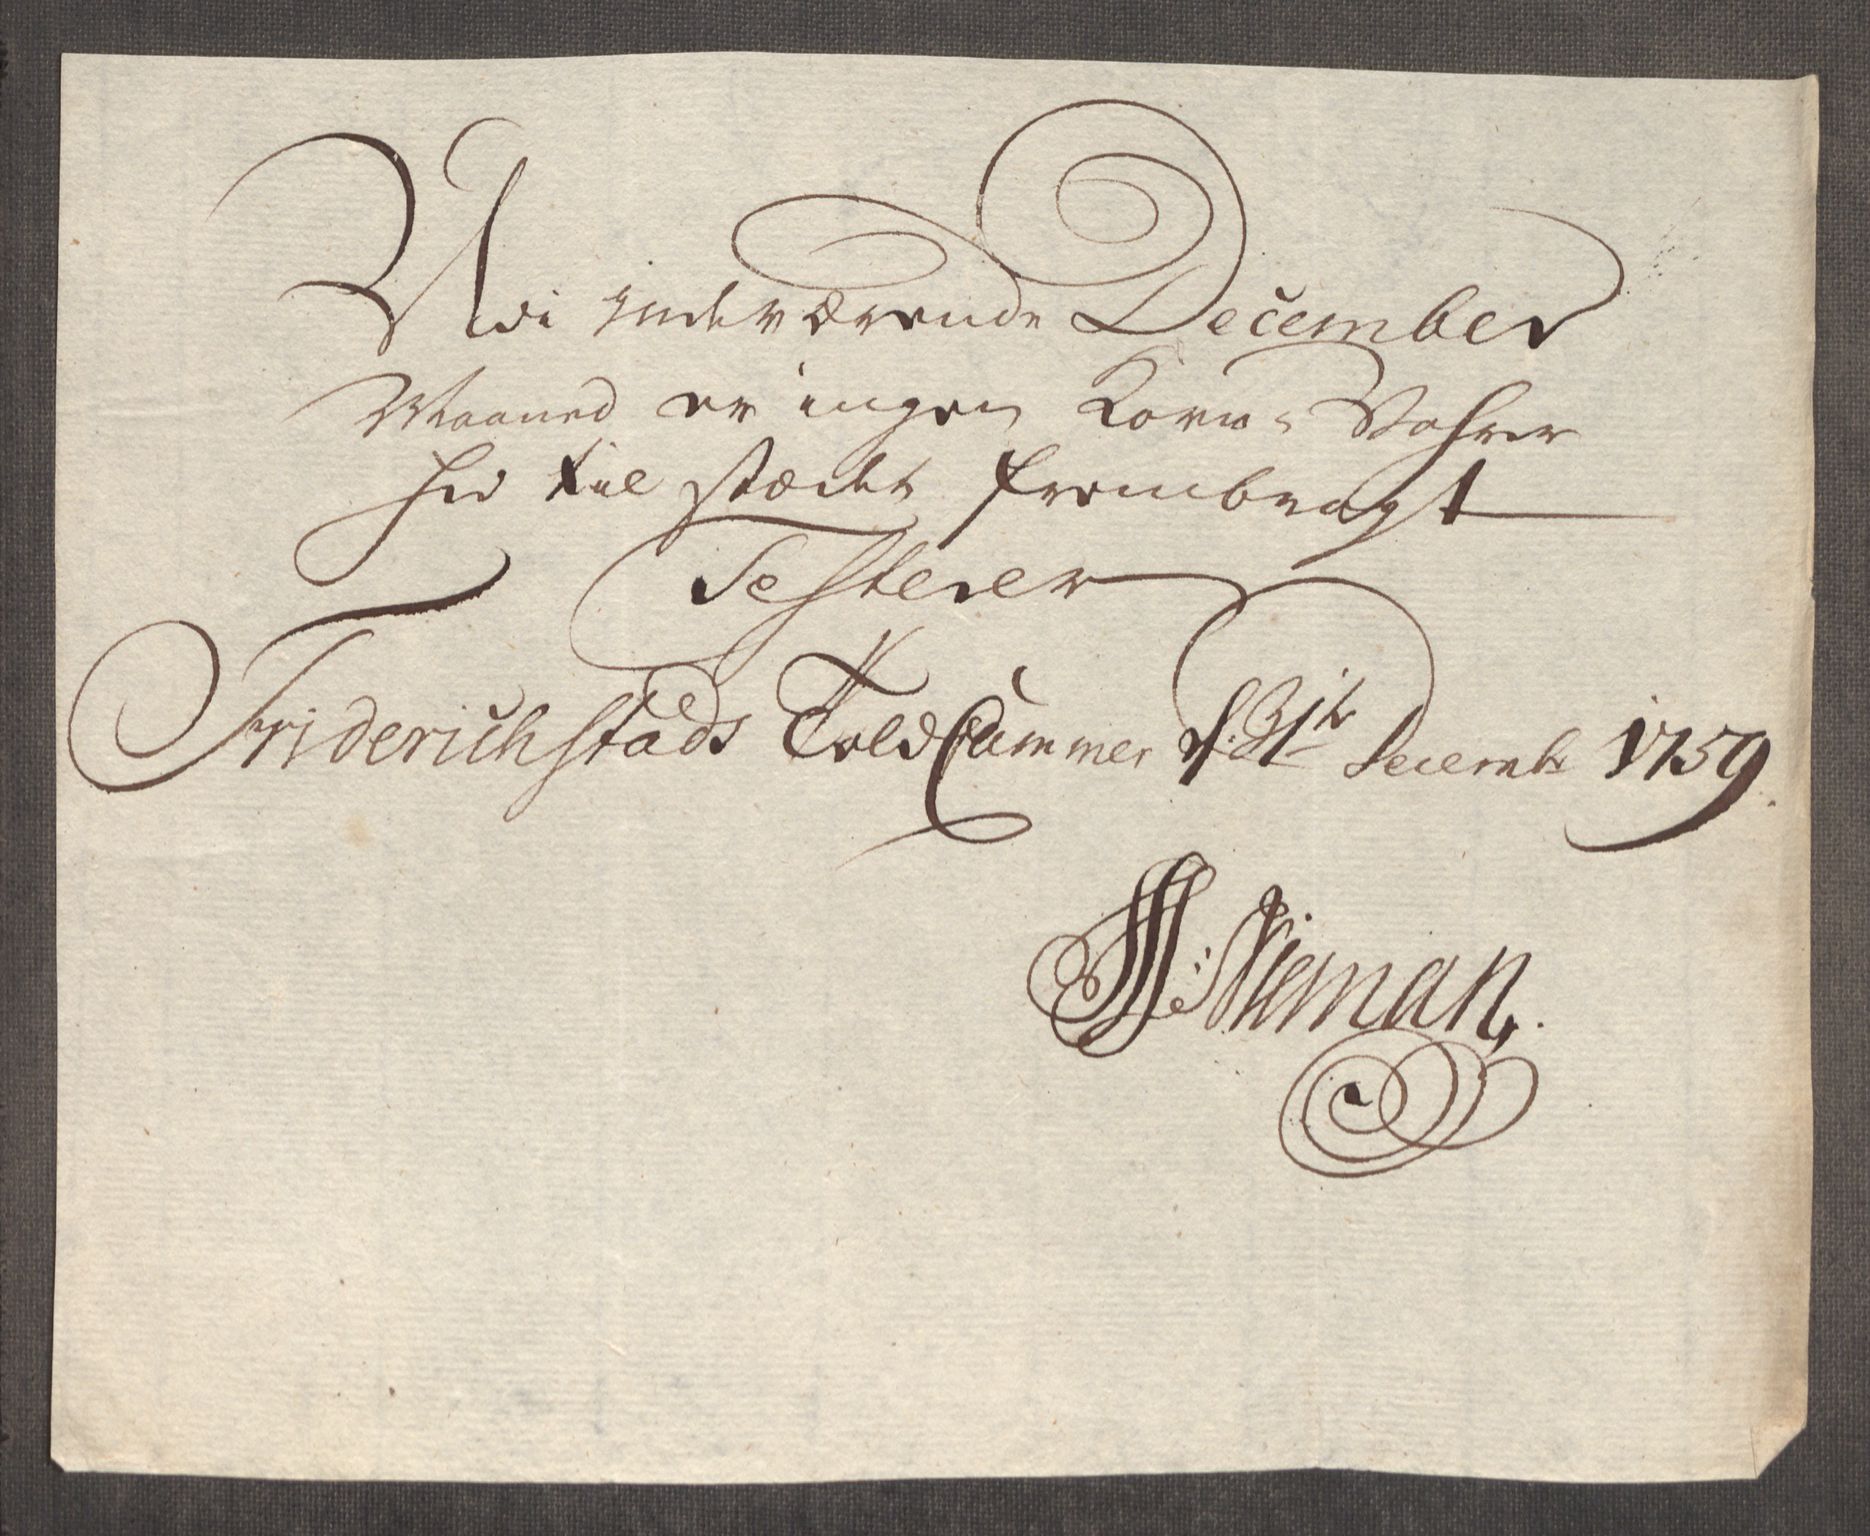 Udi inderværende December
Maaned er ingen Korn-Vahrer
hid til stædet frembragt
Testerer
Friderichstads Told Cammer d: 31te Decembr 1759.
Nieman